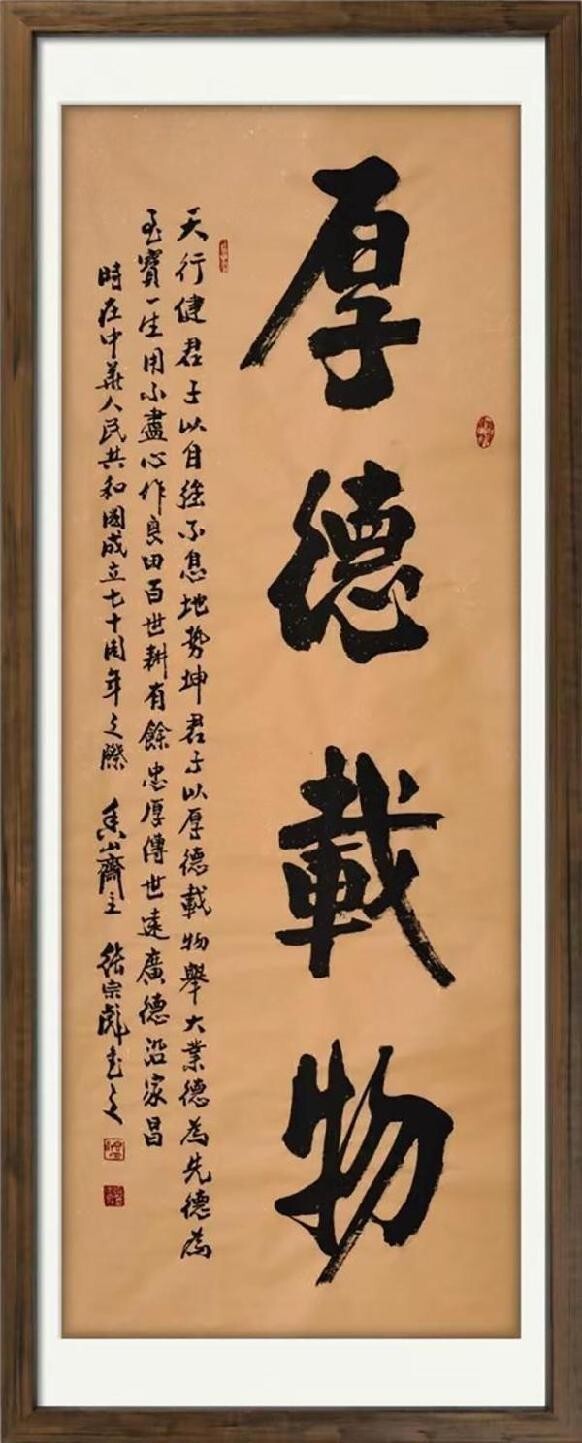 厚德載物
天行健君子以自強不息地勢坤君子以厚德載物舉大業德為先德為
至寶一生用不盡心作良田百世耕有餘忠厚傳世遠廣德沿家昌
時在中華人民共和國成立七十周年之際 齋主 宗彪書之